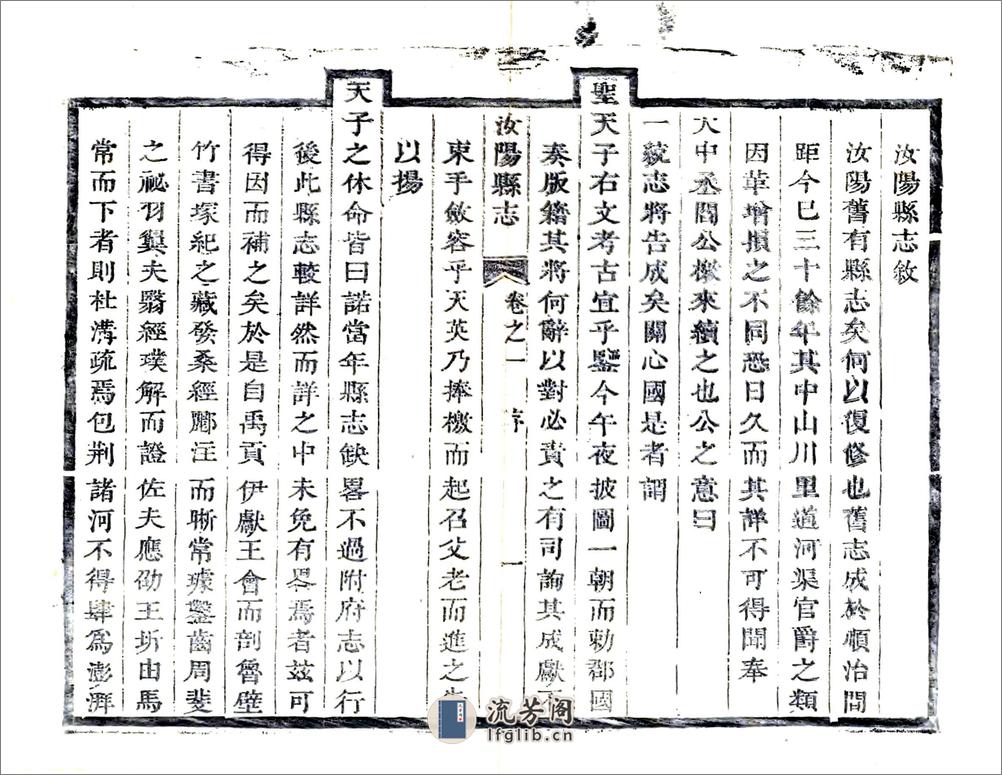 汝陽縣志敘
汝陽舊有縣志矣何以復修也舊志成於順治間
距今已三十餘年其中山川里道河渠官爵之類
因革增損之不同恐日久而其詳不可得聞奉
大中丞閻公檄來續之也公之意曰
一統志將告成矣關心國是者謂
聖天子右文考古宜乎鑒今午夜披圖一朝而勅郡國
奏版籍其將何辭以對必責之有司詢其成獻
汝陽縣志 卷之一 序 一
束手斂容乎天英乃捧檄而起召父老而進之
以揚
天子之休命皆曰諾當年縣志缺畧不過附府志以行
後此縣志較詳然而詳之中未免有畧焉者茲可
得因而補之矣於是自禹貢伊獻王會而剖魯壁
竹書塚紀之藏發桑經酈注而晰常璩鑿齒周斐
之祕羽翼夫翳經璞解而證佐夫應劭王圻由馬
常而下者則杜溝疏焉包荆諸河不得肆為澎湃
流芳阁
lfglib.cn